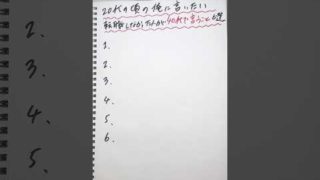 20代の頃の俺に言いたい
転職しなかった 40代で言うこと6選
1.
2.
3.
4.
5.
6.
2.
3.
4.
5.